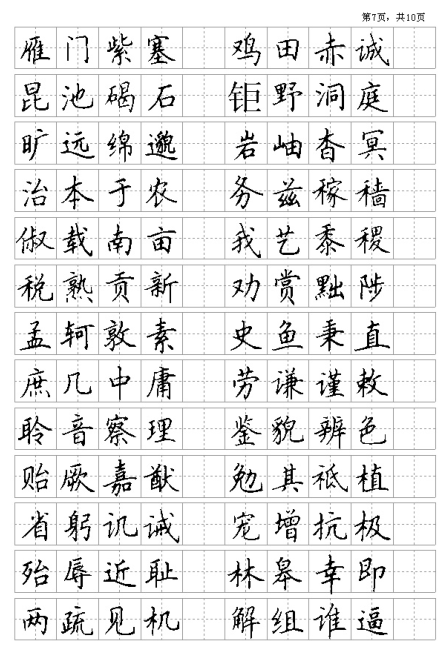 第7页，共10页
雁门紫塞 鸡田赤诚
昆池碣石 钜野洞庭
旷远绵邈 岩岫杳冥
治本于农 务兹稼穑
俶载南亩 我艺黍稷
税熟贡新 劝赏黜陟
孟轲敦素 史鱼秉直
庶几中庸 劳谦谨敕
聆音察理 鉴貌辨色
贻厥嘉猷 勉其祗植
省躬讥诫 宠增抗极
殆辱近耻 林皋幸即
两疏见机 解组谁逼